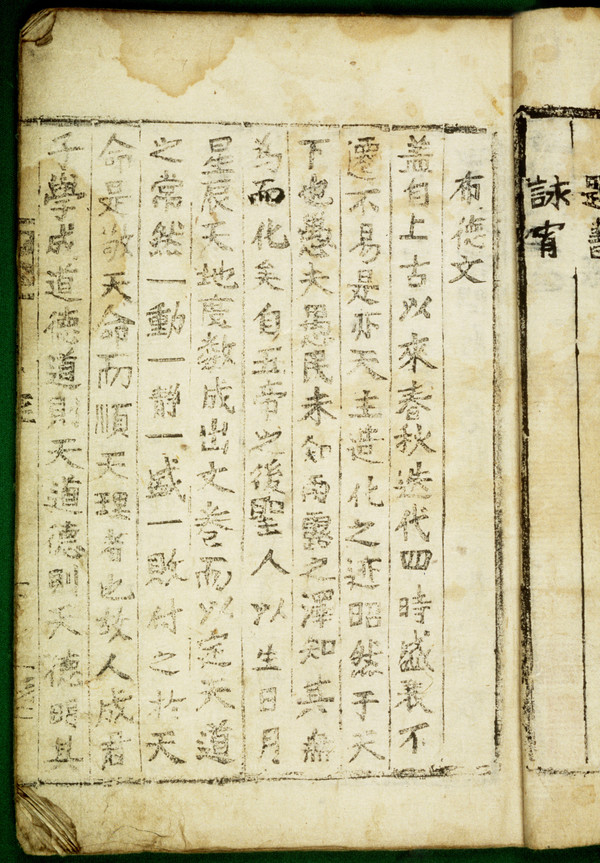 書
詠宵
布德文
盖自上古以來春秋迭代四時盛衰不
遷不易是亦天主造化之迹昭然于天
下也愚夫愚民未知雨露之澤知其無
為而化矣自五帝之後聖人以生日月
星辰天地度数成出文卷而以定天道
之常然一動一静一盛一敗付之於天
命是敬天命而順天理者也故人成君
子學成道德道則天道德則天德明其